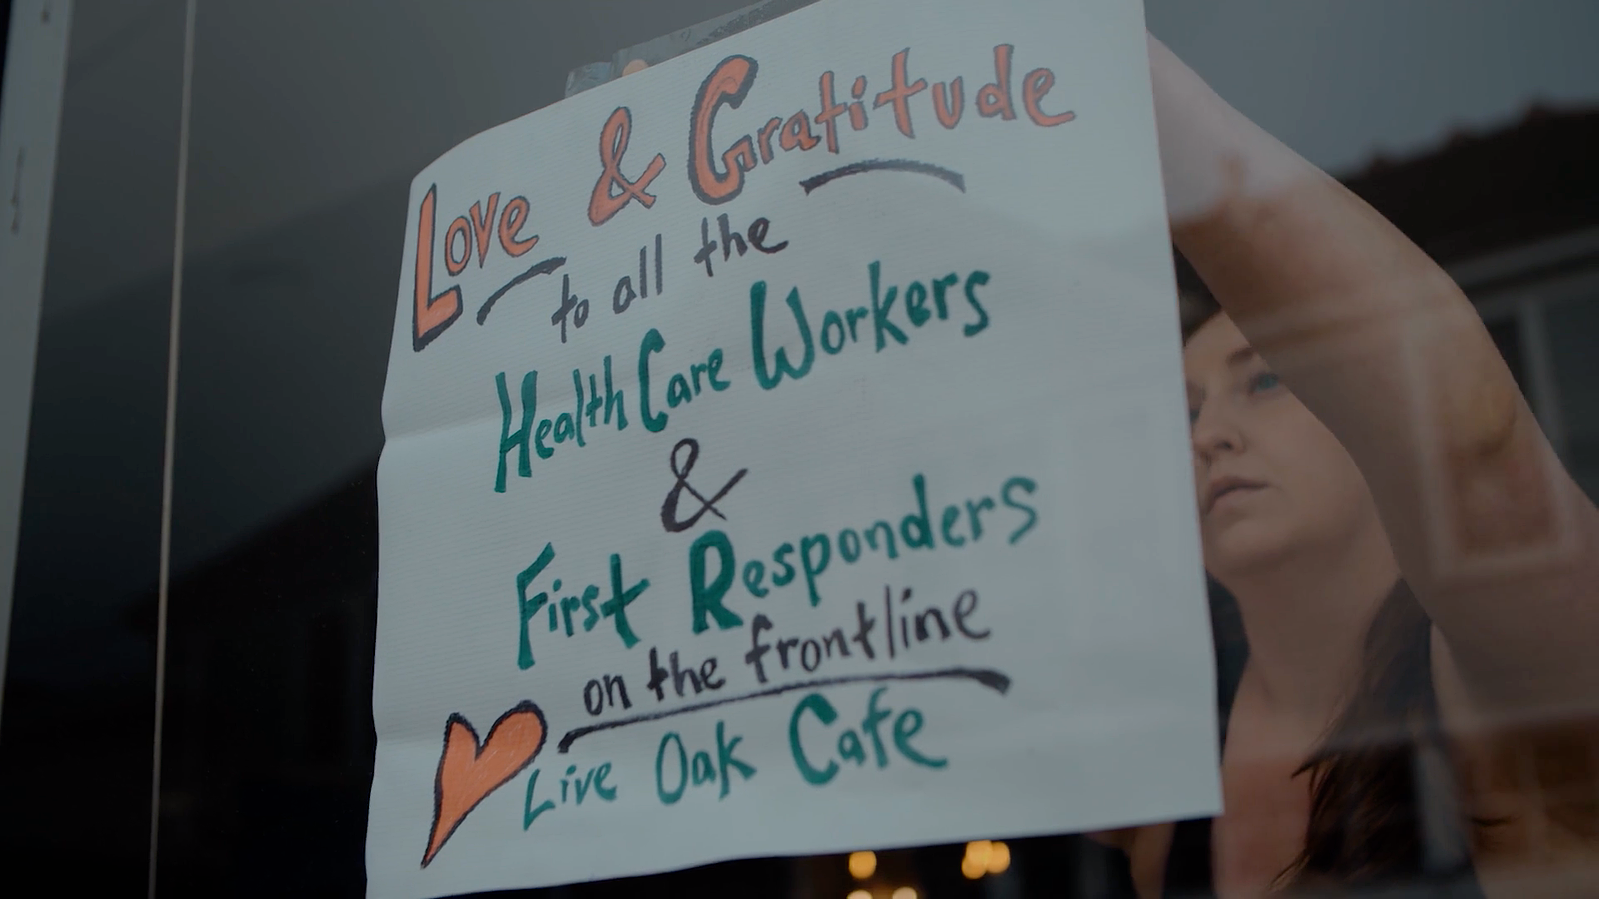 Love & Gratitude
to all the
Health Care Workers
&
First Responders
on the frontline
Live Oak Cafe